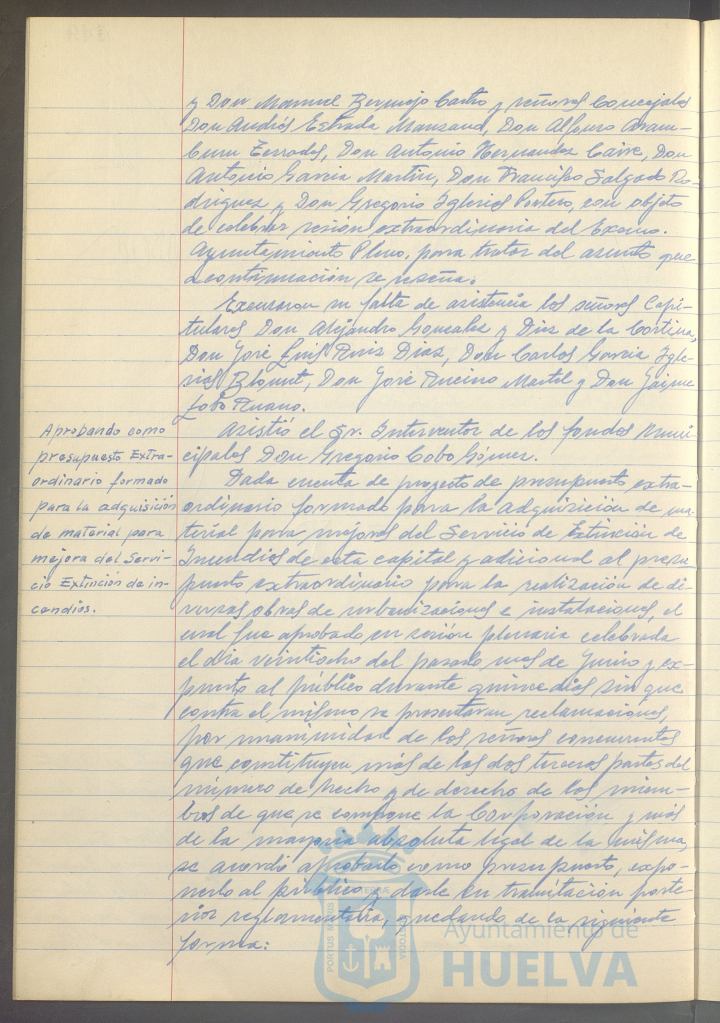 y Don Manuel Bermejo Castro y señores Concejales
Don Andrés Estrada Manzano, Don Alfonso Aram-
buru Terrades, Don Antonio Hernandez Caire, Don
Antonio Garcia Martin, Don Francisco Salgado Ro-
driguez y Don Gregorio Iglesias Portero, con objeto
de celebrar sesión extraordinaria del Excmo.
Ayuntamiento Pleno, para tratar del asunto que
a continuación se reseña.
Excusaron su falta de asistencia los señores Capi-
tulares Don Alejandro Gonzalez y Diez de la Cortina,
Don José Luis Ruiz Diaz, Don Carlos Garcia Igle-
sias Don José Martel y Don Jaime
Lobo Ruano.
Asistió el Sr. Interventor de los fondos Muni
cipales Don Gregorio Cobo Gómez.
Aprobando como
presupuesto Extra-
ordinario formado
para la adquisición
de material para
mejora del Servi-
cio Extinción de in-
cendios.
Dada cuenta de proyecto de presupuesto extra-
ordinario formado para la adquisición de ma
terial para mejoras del Servicio de Extinción de
Incendios de esta capital y adicional al presu
puesto extraordinario para la realización de di-
versas obras de urbanizaciones e instalaciones, el
cual fue aprobado en sesión plenaria celebrada
el dia veintiocho del pasado mes de Junio y ex-
puesto al público durante quince dias sin que
contra el mismo se presentaran reclamaciones,
por unanimidad de los señores concurrentes
que constituyen más de las dos terceras partes del
número de hecho y de derecho de los miem-
bros de que se compone la Corporación y más
de la mayoria absoluta legal de la misma,
se acordó aprobarlo como presupuesto, expo-
nerlo al público y darle la tramitación poste-
rior reglamentaria, quedando de la siguiente
forma:
PORTUS MARIS
ET TERRAE
CUSTODIA
Ayuntamiento de
HUELVA